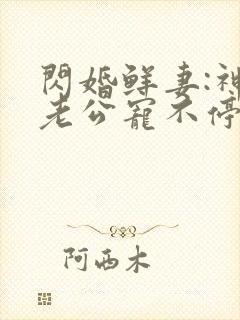 閃婚鮮妻:神
老公寵不停
阿西木